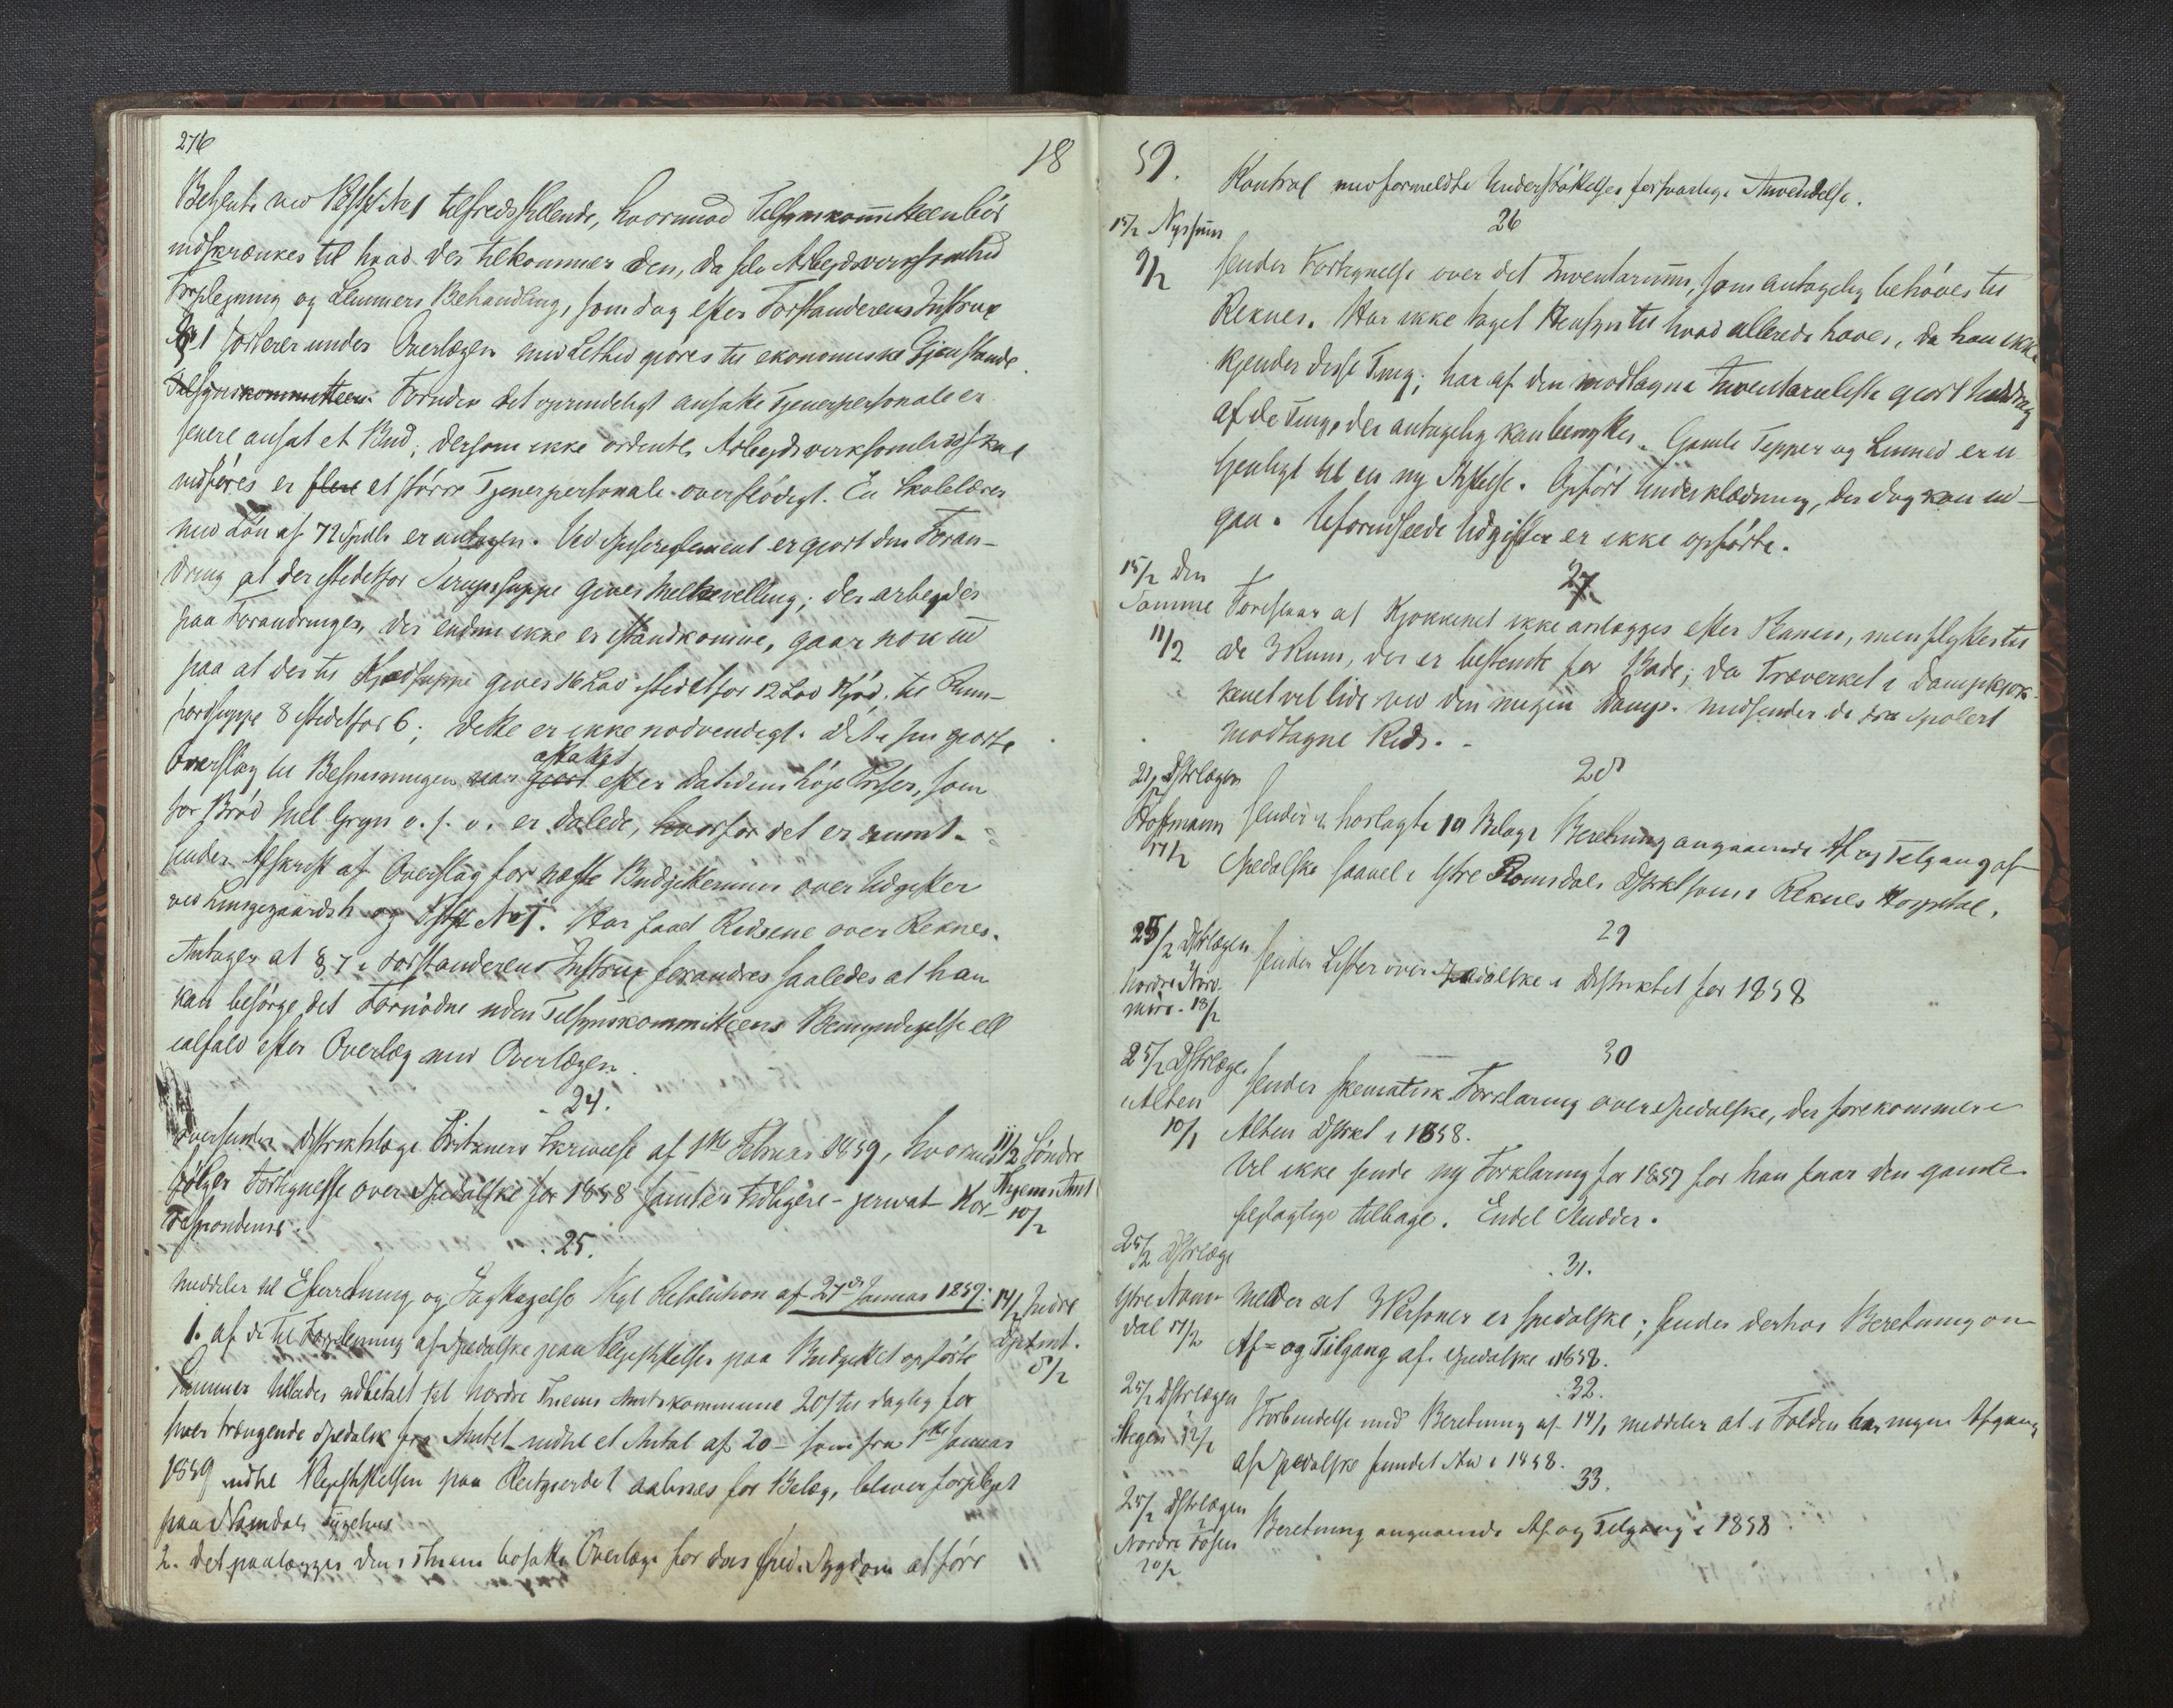 276
18
Betjent ved Plstft No 1 tilfredsstillende, hvorimod Tilsynskommitteen bør
indskrænkes til hvad der tilkommer den, da selv Arbejdsvirksomhed
Forplejning og Lemmers Behandling, som dog efter Forstanderens Instrux
§ 1 sorterer under Overlægen med Lethed gjøres til økonomiske Gjenstande.
Tilsynskommitteen. Foruden det oprindeligt ansatte Tjenerpersonale er
senere ansat et Bud; dersom ikke ordentl. Arbejdsvirksomhed skal
indføres er flere et større Tjenerpersonale overflødigt. En Skolelærer
med Løn af 72 Spdlr er antagen. Ved Spisereglement er gjort den Foran-
dring at der istedetfor Sirupssuppe gives Melkevelling; der arbejdes
paa Forandringer, der endnu ikke er istandkomne, gaar nok ud
paa at der til Kjødsuppe gives 16 Lod istedetfor 12 Lod Kjød, til Rum-
fordsuppe 8 istedetfor 6; dette er ikke nødvendigt. Det af ham gjorte
Overslag til Bespisningen var gjort affattet efter Datidens høje Priser, som
for Brød Mel Gryn o. s. v. er dalede, hvorfor det er rumt.
sender Afskrift af Overslag for næste Budgettermin over Udgifter
ved Lungegaardsh. og Plstft No 1. Har faaet Ridsene over Reknes.
Antager at § 7 i Forstanderens Instrux forandres saaledes at han
kan besørge det Fornødne uden Tilsynskommitteens Bemyndigelse ell
ialfald efter Overlæg med Overlægen.
24.
oversender Distriktslæge Skrivelse af 1ste Februar 1859, hvormed
følger Fortegnelse over Spedalske for 1858 samt en tidligere privat Kor-
respondense.
11/2 Søndre
Thjems Amt
10/2
25.
meddeler til Efterretning og Iagttagelse Kgl Resolution af 27de Januar 1859:
14/2 Indre
Dptmt.
8/2
1. af de til Forplejning af Spedalske paa Plejestiftelser paa Budgettet opførte
Summer tillades udbetalt til Nordre Thjems Amtskommune 20 ß daglig for
hver trængende Spedalsk fra Amtet indtil et Antal af 20 som fra 1ste Januar
1859 indtil Plejestiftelsen paa Reitgjerdet aabnes for Belæg, bliver forplejet
paa Namdals Sygehus
2. Det paalægges den i Thjem bosatte Overlæge for den sped. Sygdom at føre
59.
Kontrol med formeldte Understøttelses forsvarlige Anvendelse.
26
15/2 Nyssum
9/2
sender Fortegnelse over det Inventarium, som antagelig behøves til
Reknes. Har ikke taget Hensyn til hvad allerede haves, da han ikke
kjender disse Ting; har af den modtagne Inventarieliste gjort Uddrag
af de Ting, der antagelig kan benyttes. Gamle Tepper og Linned er u-
tjenligt til en ny Stiftelse. Opført Underklædning, der dog kan ud-
gaa. Uforudseede Udgifter er ikke opførte.
27.
15/2 Den
Samme
11/2
Foreslaar at Kjøkkenet ikke anlægges efter Planen, men flyttes til
de 3 Rum, der er bestemte for Bade; da Træverket i Dampkjøk-
kenet vil lide ved den megen Damp. medsender de fra Spolert
modtagne Rids.
28
21/2 Dstrlægen
Hoffmann
17/2
sender i hoslagte 10 Bilage Beretning angaaende Af og Tilgang af
Spedalske saavel i Ytre Romsdals Dstrkt som i Reknes Hospital.
29
25/2 Dstrlægen
Nordre Nord-
møre. 18/2
sender Lister over Spedalske i Distriktet for 1858
30
25/2 Dstrlæge
i Alten
10/1
sender skematisk Forklaring over Spedalske, der forekommer i
Alten Dstrkt i 1858.
Vil ikke sende ny Forklaring for 1859 før han faar den gamle
fejlagtige tilbage. Endel Studder.
31.
25/2 Dstrlæge
Ytre Nam-
dal 17/2
Melder at 3 Personer er spedalske; sender derhos Beretning om
Af- og Tilgang af Spedalske i 1858.
32.
25/2 Dstrlægen
Stegen 12/2
I Forbindelse med Beretning af 14/1 meddeler at i Folden har ingen Afgang
af Spedalske fundet Sted i 1858.
33.
25/2 Dstrlægen
Nordre Fosen
20/2
Beretning angaaende Af og Tilgang i 1858.